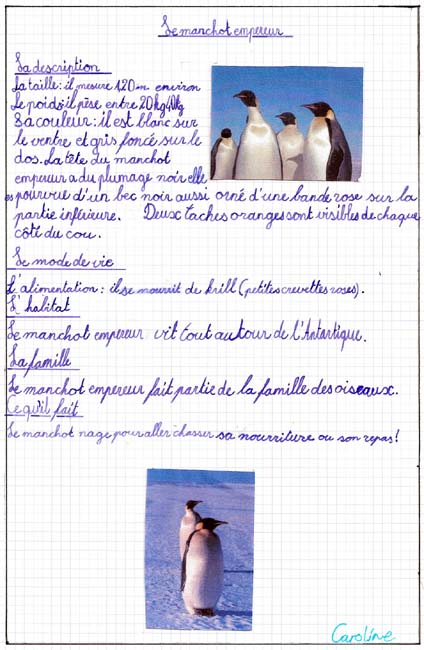 Le manchot empereur
Sa description
La taille: il mesure 1.20 m environ
Le poids: il pèse entre 20kg 40kg
Sa couleur: il est blanc sur
le ventre et gris foncé sur le
dos. La tête du manchot
empereur a du plumage noir elle
es pourvue d'un bec noir aussi orné d'une bande rose sur la
partie inférieure. Deux taches oranges sont visibles de chaque
côté du cou.
Le mode de vie
L'alimentation: il se nourrit de krill (petites crevettes roses).
L'habitat
Le manchot empereur vit tout autour de l'Antartique.
La famille
Le manchot empereur fait partie de la famille des oiseaux.
Ce qu'il fait
Le manchot nage pour aller chasser sa nourriture ou son repas!
Caroline